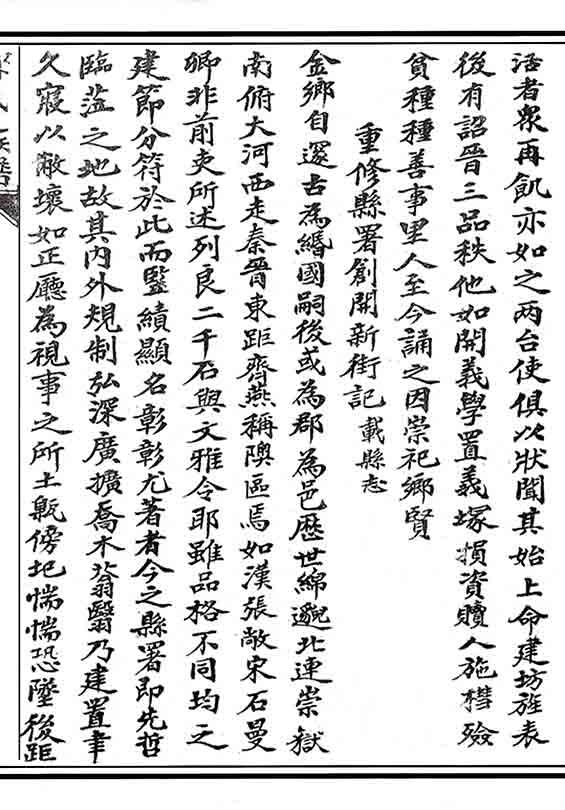 活者衆再飢亦如之兩台使俱以狀聞其始上命建坊旌表
後有詔晉三品秩他如開義學置義塚損資贖人施槥殮
貧種種善事里人至今誦之因崇祀鄉賢
重修縣署創開新街記載縣志
金鄉自邃古為緡國嗣後或為郡為邑歷世綿邈北連崇嶽
南俯大河西走秦晉東距齊燕稱隩區焉如漢張敞宋石曼
卿非前吏所述列良二千石與文雅令耶雖品格不同均之
建節分符於此而豎績顯名彰彰尤著者今之縣署即先哲
臨蒞之地故其內外規制弘深廣擴喬木蓊翳乃建置聿
久寢以敝壞如正廳為視事之所土甎傍圮惴惴恐墜後距